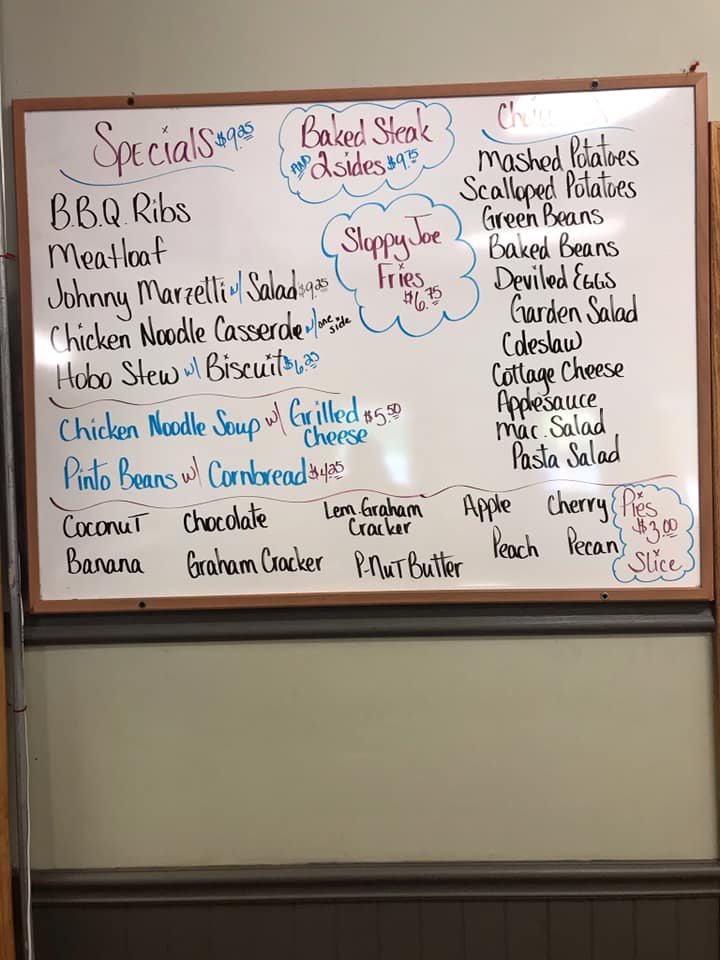 Specials $9.25
B.B.Q. Ribs
Meatloaf
Johnny Marzetti w/ Salad $9.25
Chicken Noodle Casserole w/ one side
Hobo Stew w/ Biscuit $6.25
Baked Steak
AND 2 sides $9.75
Sloppy Joe
Fries
$6.75
Mashed Potatoes
Scalloped Potatoes
Green Beans
Baked Beans
Deviled Eggs
Garden Salad
Coleslaw
Cottage Cheese
Applesauce
Mac. Salad
Pasta Salad
Chicken Noodle Soup w/ Grilled Cheese $5.50
Pinto Beans w/ Cornbread $4.25
Coconut Chocolate Lem. Graham Cracker Apple Cherry
Banana Graham Cracker P-Nut Butter Peach Pecan
Pies
$3.00
Slice